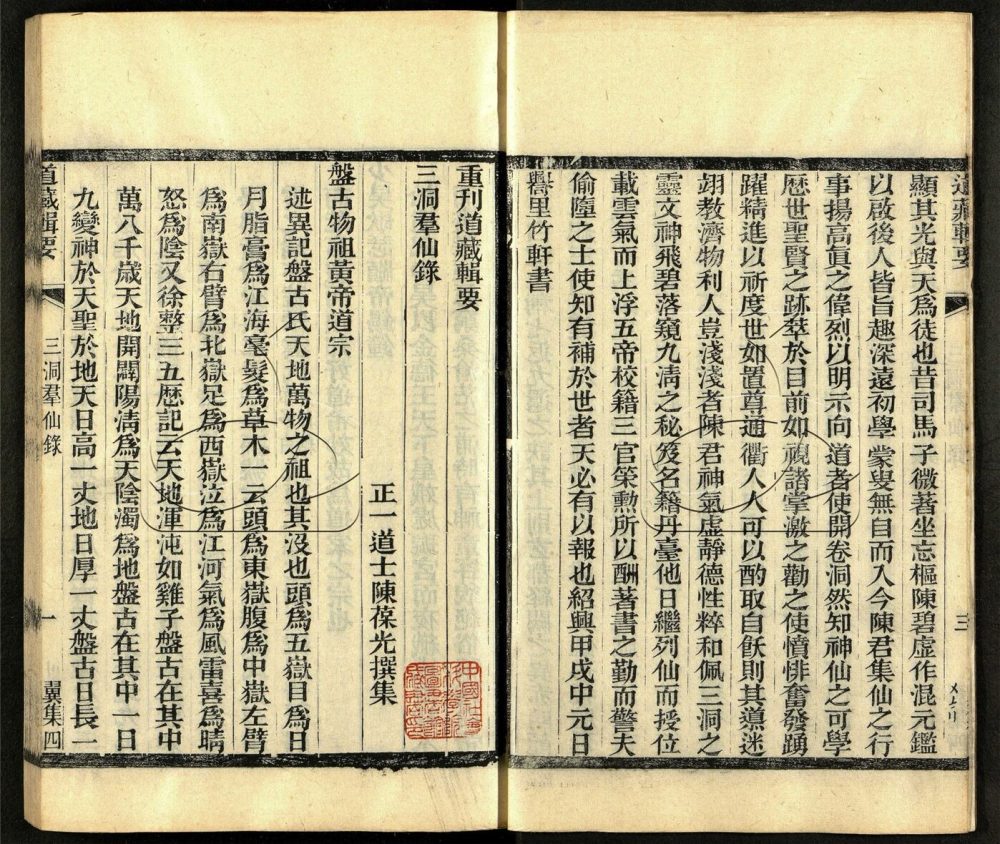 道藏輯要
三
顯其光與天爲徒也昔司馬子微著坐忘樞陳碧虛作混元鑑
以啟後人皆旨趣深遠初學蒙叟無自而入今陳君集仙之行
事揚高眞之偉烈以明示向道者使開卷洞然知神仙之可學
歷世聖賢之跡萃於目前如視諸掌激之勸之使憤悱奮發踴
躍精進以祈度世如置尊通衢人人可以酌取自飫則其導迷
翊教濟物利人豈淺淺者陳君神氣虛靜德性粹和佩三洞之
靈文神飛碧落窺九淸之秘笈名籍丹臺他日繼列仙而授位
載雲氣而上浮五帝校籍三官策勲所以酬著書之勤而警夫
偷墮之士使知有補於世者天必有以報也紹興甲戌中元日
譽里竹軒書
重刊道藏輯要
三洞羣仙錄
正一道士陳葆光撰集
盤古物祖黃帝道宗
述異記盤古氏天地萬物之祖也其沒也頭爲五嶽目爲日
月脂膏爲江海毫髮爲草木一云頭爲東嶽腹爲中嶽左臂
爲南嶽右臂爲北嶽足爲西嶽泣爲江河氣爲風雷喜爲晴
怒爲陰又徐整三五歷記云天地渾沌如雞子盤古在其中
萬八千歲天地開闢陽淸爲天陰濁爲地盤古在其中一日
九變神於天聖於地天日高一丈地日厚一丈盤古日長一
道藏輯要
三洞羣仙錄
一
翼集四